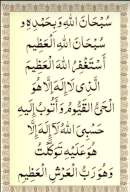 سُبْحَانَ اللهِ وَبِحَمْدِهِ
سُبْحَانَ اللهِ الْعَظِيمِ
أَسْتَغْفِرُ اللهَ الْعَظِيمَ
الَّذِي لَا إِلٰهَ إِلَّا هُوَ
الْحَيُّ الْقَيُّومُ وَأَتُوبُ إِلَيْهِ
حَسْبِيَ اللهُ لَا إِلٰهَ إِلَّا
هُوَ عَلَيْهِ تَوَكَّلْتُ
وَهُوَ رَبُّ الْعَرْشِ الْعَظِيمِ